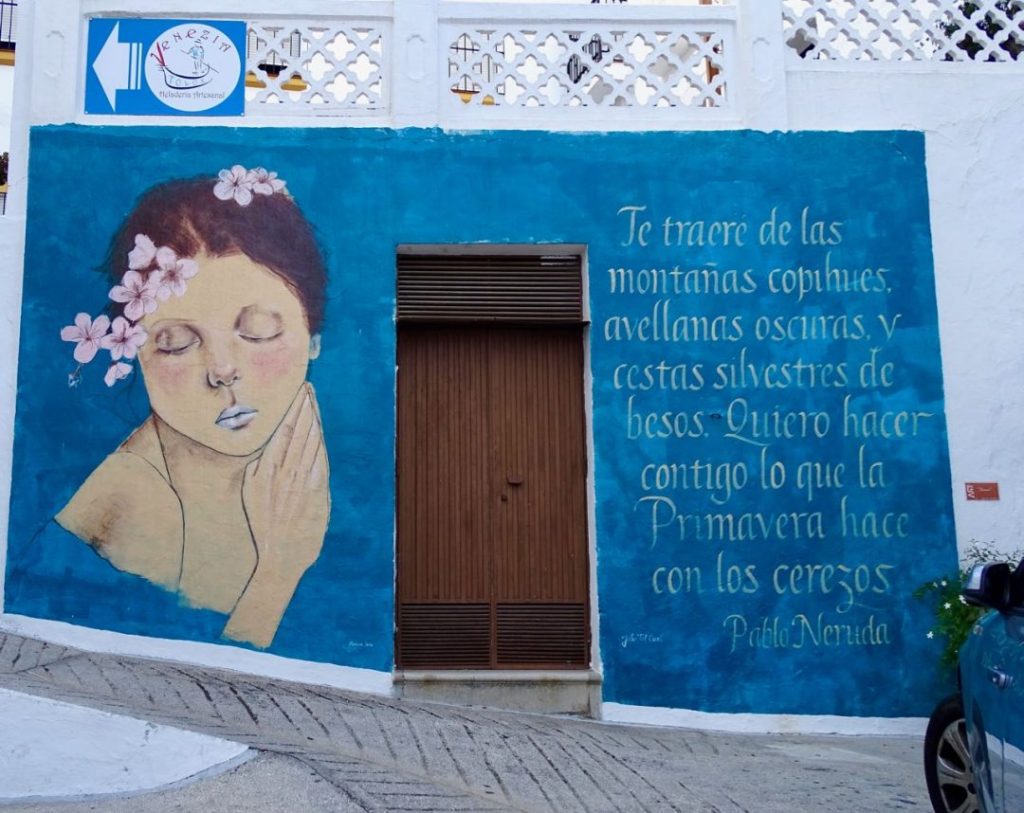 VENEZIA
Heladería Artesanal
Te traeré de las
montañas copihues,
avellanas oscuras, y
cestas silvestres de
besos. Quiero hacer
contigo lo que la
Primavera hace
con los cerezos
Pablo Neruda